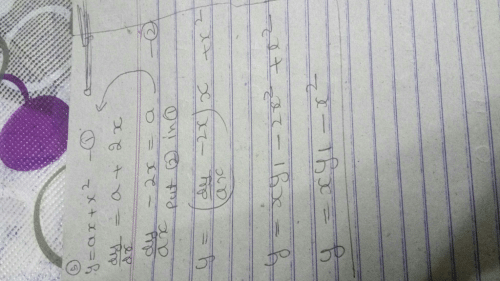 ⑤
y = ax + x² —①
dy/dx = a + 2x
dy/dx - 2x = a —②
put ② in ①
y = (dy/dx - 2x) x + x²
y = xy₁ - 2x² + x²
y = xy₁ - x²